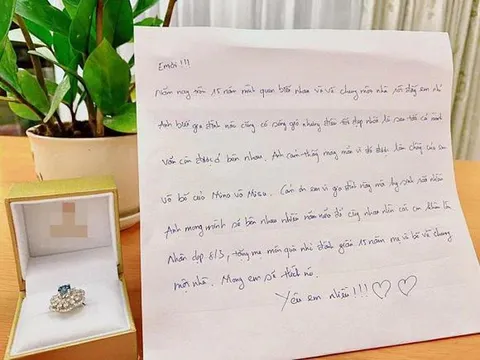 Emơi !!!
Năm nay nữa 15 năm mình quen biết nhau và về chung một nhà rồi đấy em nhỉ
Anh biết gia đình nào cũng có sóng gió nhưng điều tốt đẹp nhất là sau tất cả mình
vẫn còn được ở bên nhau. Anh cảm thấy may mắn vì đã được làm chồng của em
và bố của Mina và Misu. Cảm ơn em vì gia đình này mà hy sinh rất nhiều
Anh mong mình sẽ bên nhau nhiều năm nữa để cùng nhau nhìn các con khôn lớn
Nhân dịp 8/3, tặng mẹ món quà nhỏ đánh giấu 15 năm mẹ và bố về chung
một nhà. Mong em sẽ thích nó.
Yêu em nhiều !!!